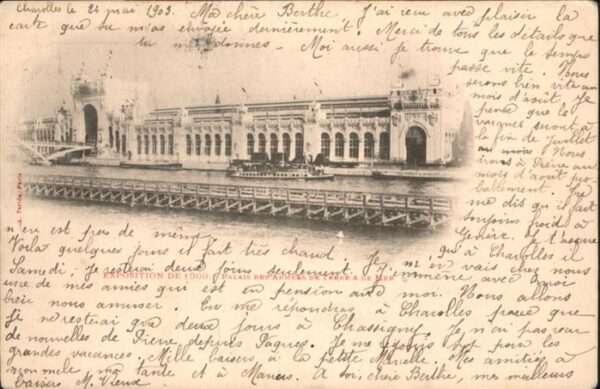 Charolles le 24 mai 1903. Ma chère Berthe J'ai reçu avec plaisir la
carte que tu m'as envoyée dernièrement. Merci de tous les détails que
tu me donnes - Moi aussi je trouve que le temps
passe vite. Nous
serons bien vite au
mois d'août. Je
pense que les
vacances seront à
la fin de juillet
au moins. Nous
irons à Frère au
mois d'août pro-
bablement. Tu
me dis qu'il fait
toujours froid à
Genève. Je t'assure
qu'à Charolles il
n'en est pas de même.
Voilà quelques jours il fait très chaud. Je m'en vais chez nous
Samedi; Je resterai deux jours seulement. J'emmène avec moi
une de mes amies qui est en pension avec moi. Nous allons
bien nous amuser. Tu me répondras à Charolles parce que
Je ne resterai que deux jours à Chassigny. Je n'ai pas reçu
de nouvelles de Pierre depuis Pâques. Je me réjouis bien pour les
grandes vacances. Mille baisers à la petite Marcelle. Mes amitiés à
mon oncle ma tante et à Marius. A toi, chère Berthe, mes meilleurs
baisers M. Vieux
EXPOSITION DE 1900 PALAIS DES ARMÉES DE TERRE & DE MER
Paris